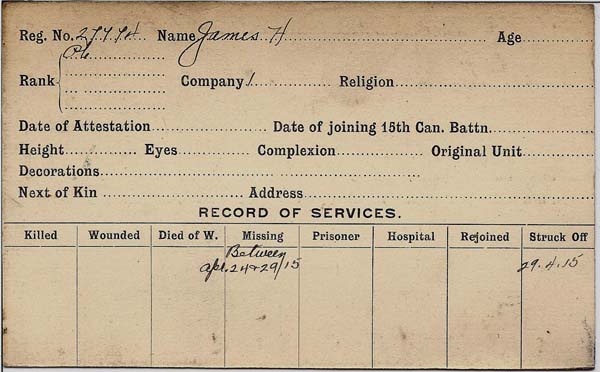 Reg. No. 27794 Name James H Age
Rank Pte
Company 1 Religion
Date of Attestation Date of joining 15th Can. Battn.
Height Eyes Complexion Original Unit
Decorations
Next of Kin Address
RECORD OF SERVICES.
Killed Wounded Died of W. Missing Prisoner Hospital Rejoined Struck Off
Between
Apl. 24 & 29/15 29.4.15